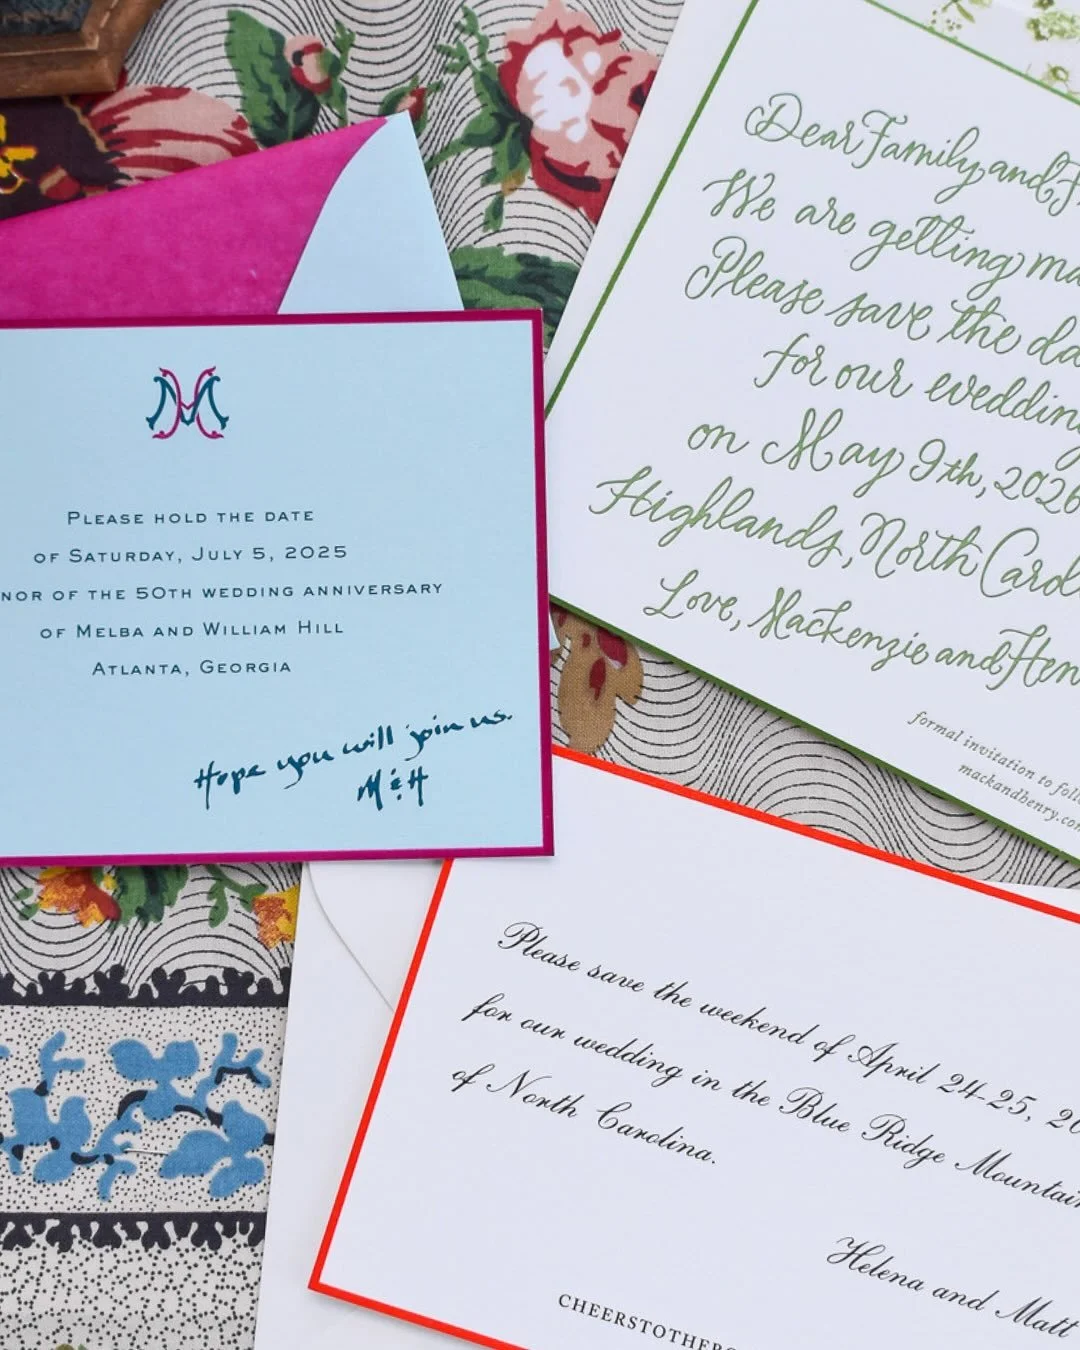 PLEASE HOLD THE DATE
OF SATURDAY, JULY 5, 2025
OF THE 50TH WEDDING ANNIVERSARY
OF MELBA AND WILLIAM HILL
ATLANTA, GEORGIA
Hope you will join us.
M & H
Dear Family and
We are getting
Please save the
for our wedding
on May 9th, 2026
Highlands, North
Love, Mackenzie and
formal invitation to
mackandhenry.com
Please save the weekend of April 24-25,
for our wedding in the Blue Ridge
of North Carolina.
Helena and Matt